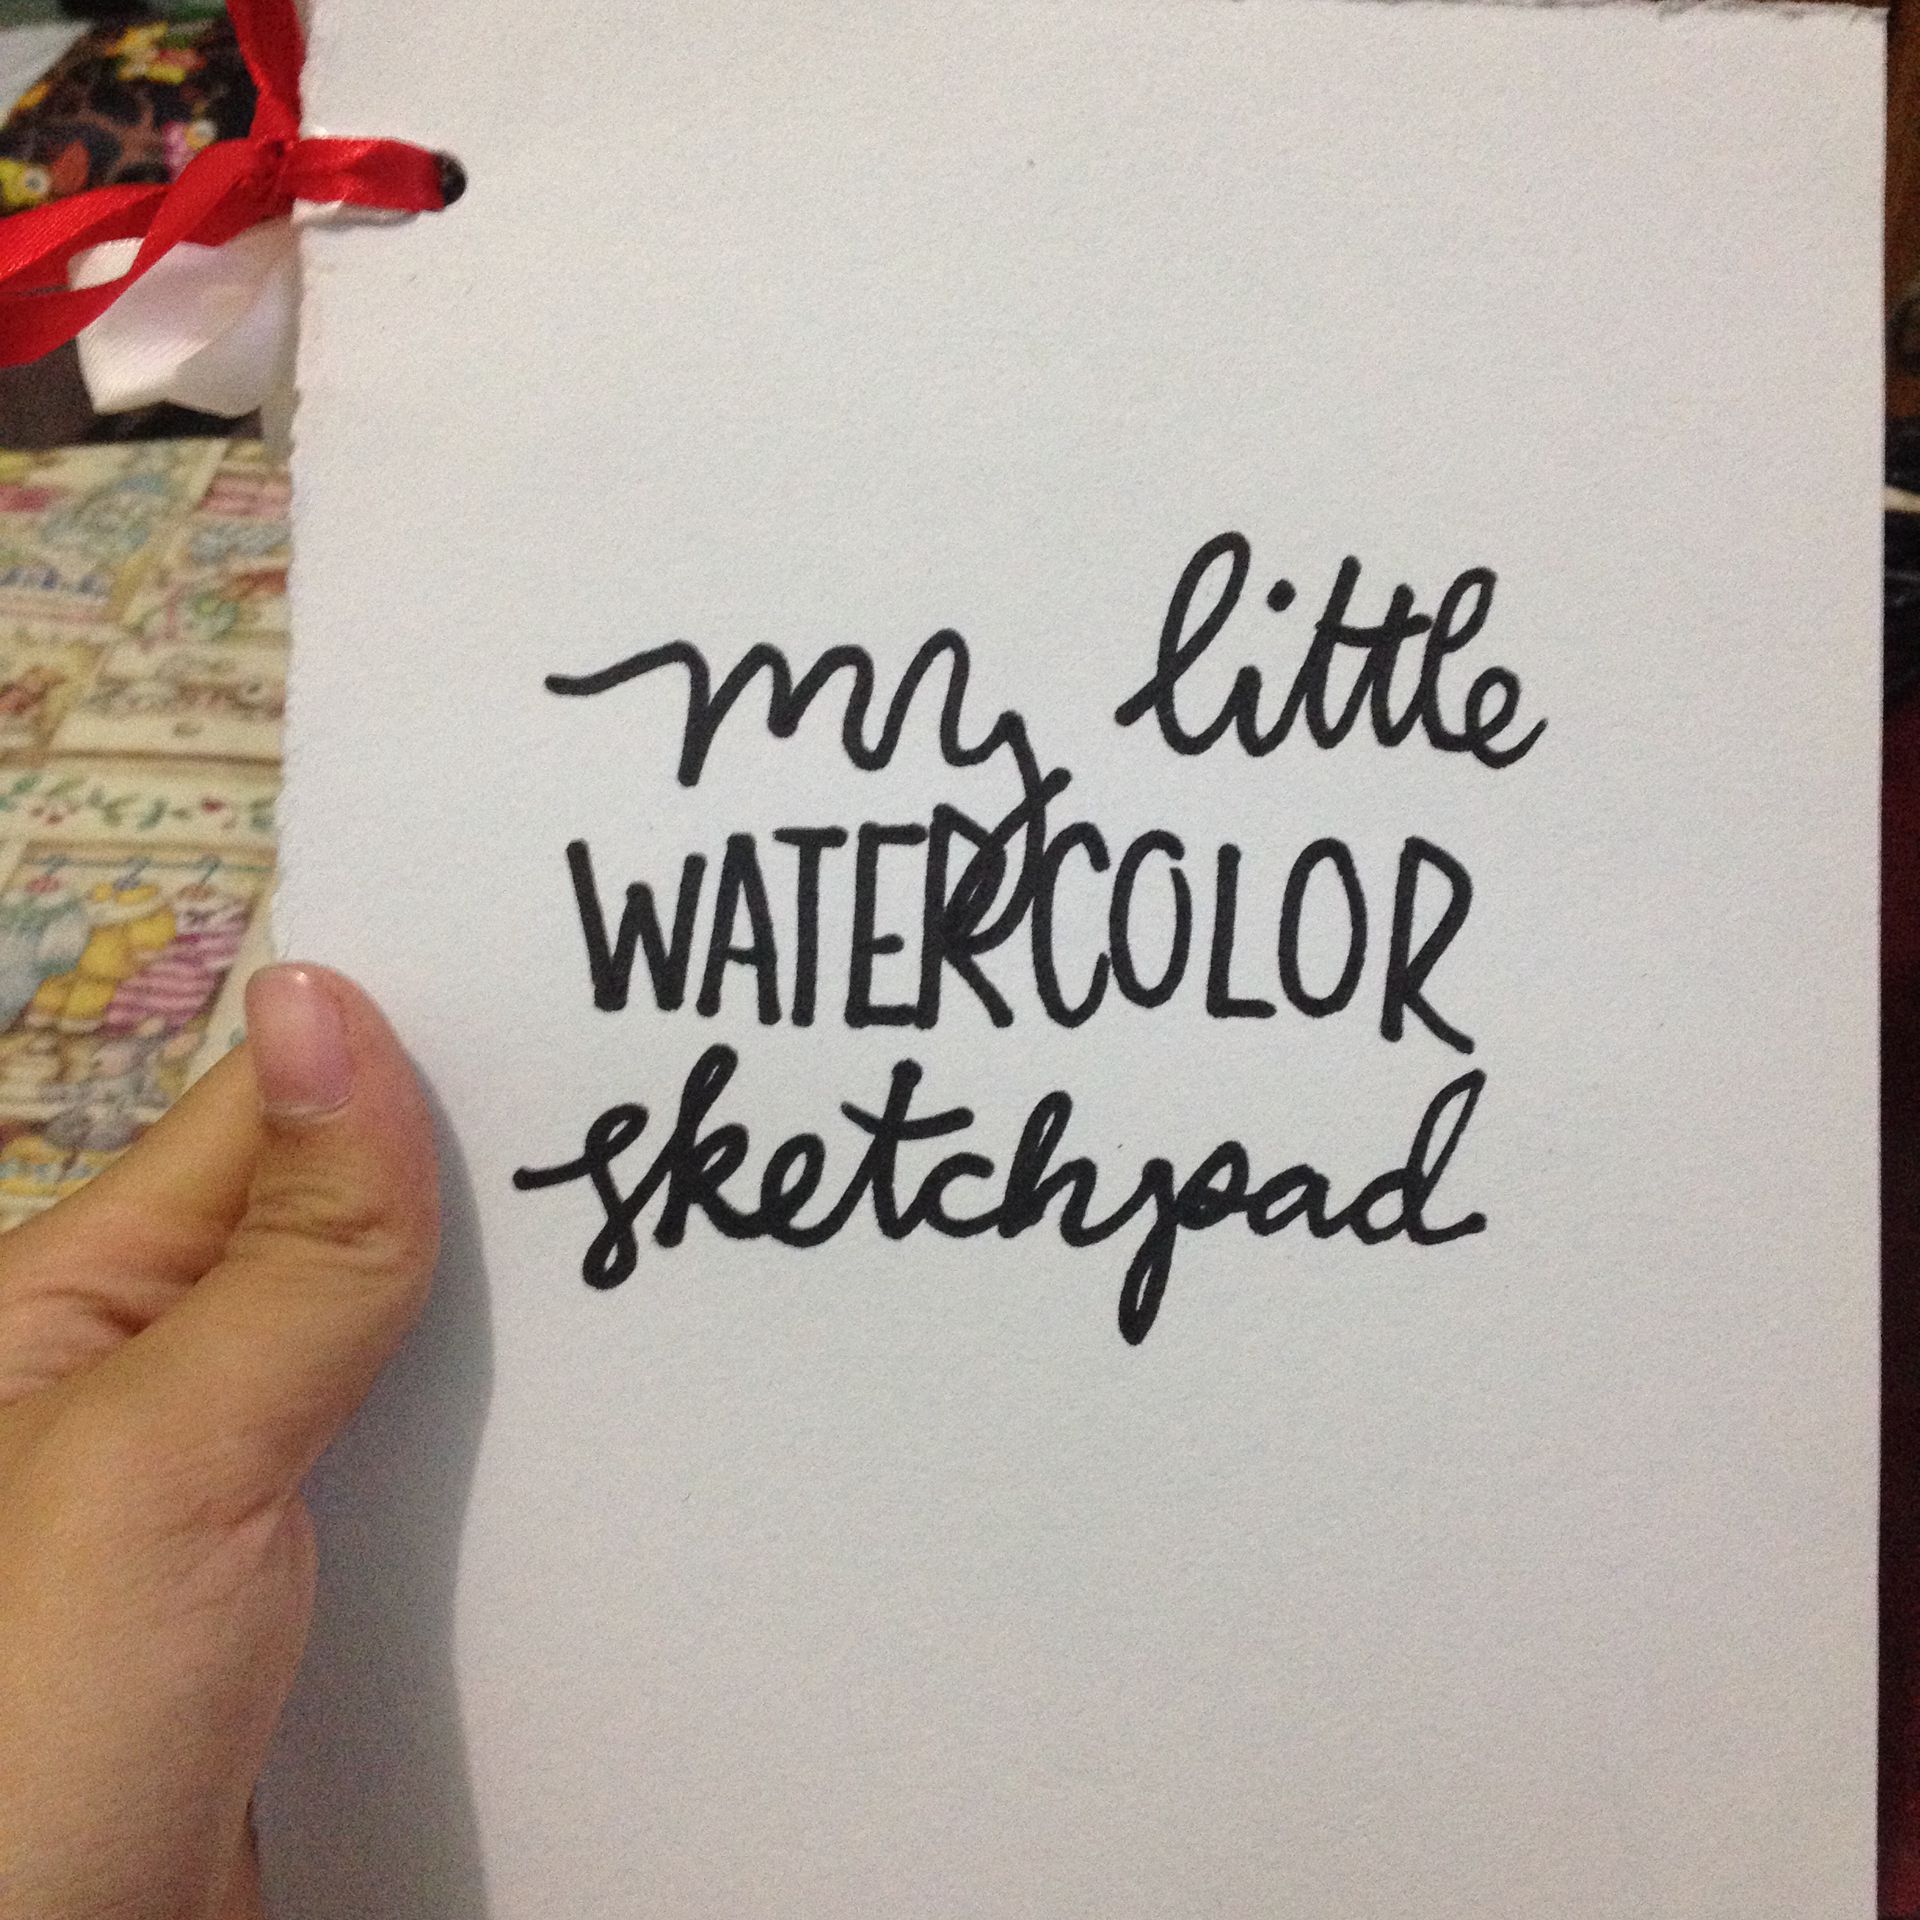 my little
WATERCOLOR
sketchpad